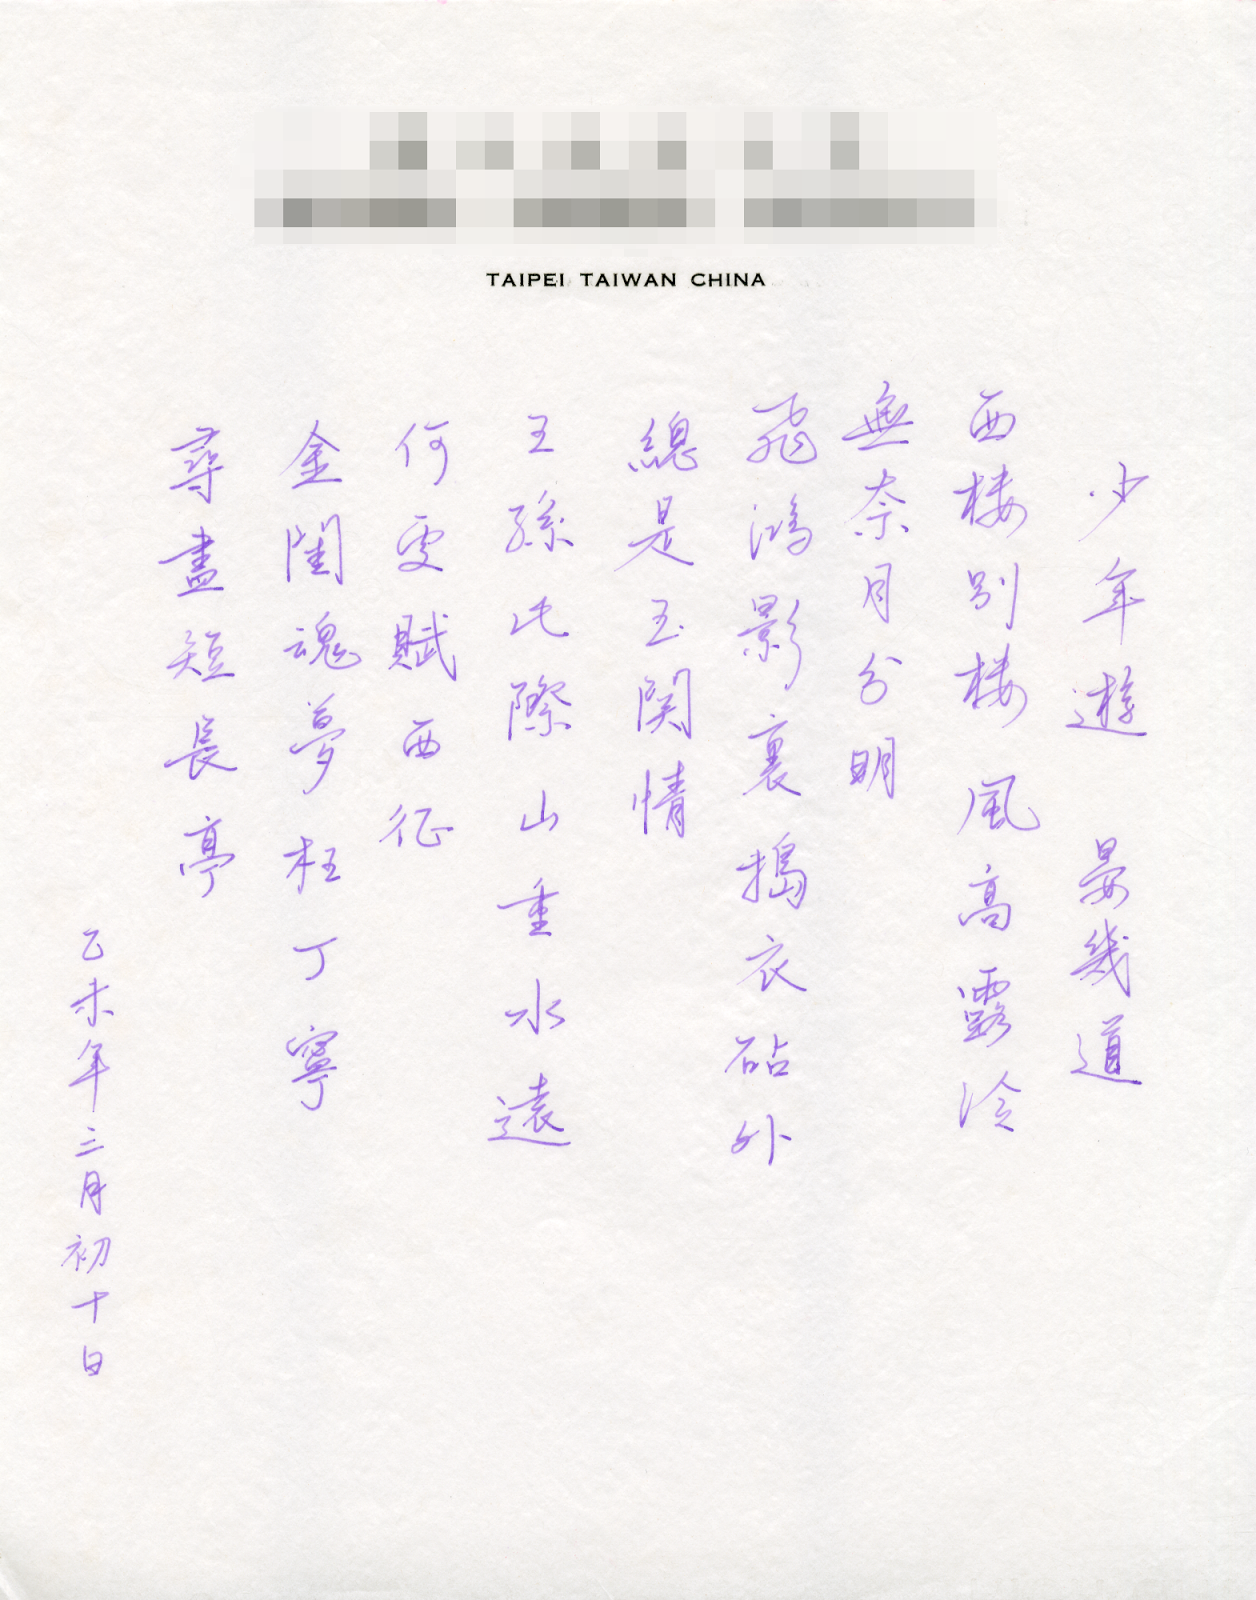 TAIPEI TAIWAN CHINA
少年遊 晏幾道
西楼别楼 風高露冷
無奈月分明
飛鴻影裏搗衣砧外
總是玉関情
王孫此際山重水遠
何處賦西征
金閨魂夢枉丁寧
尋盡短長亭
乙未年三月初十日